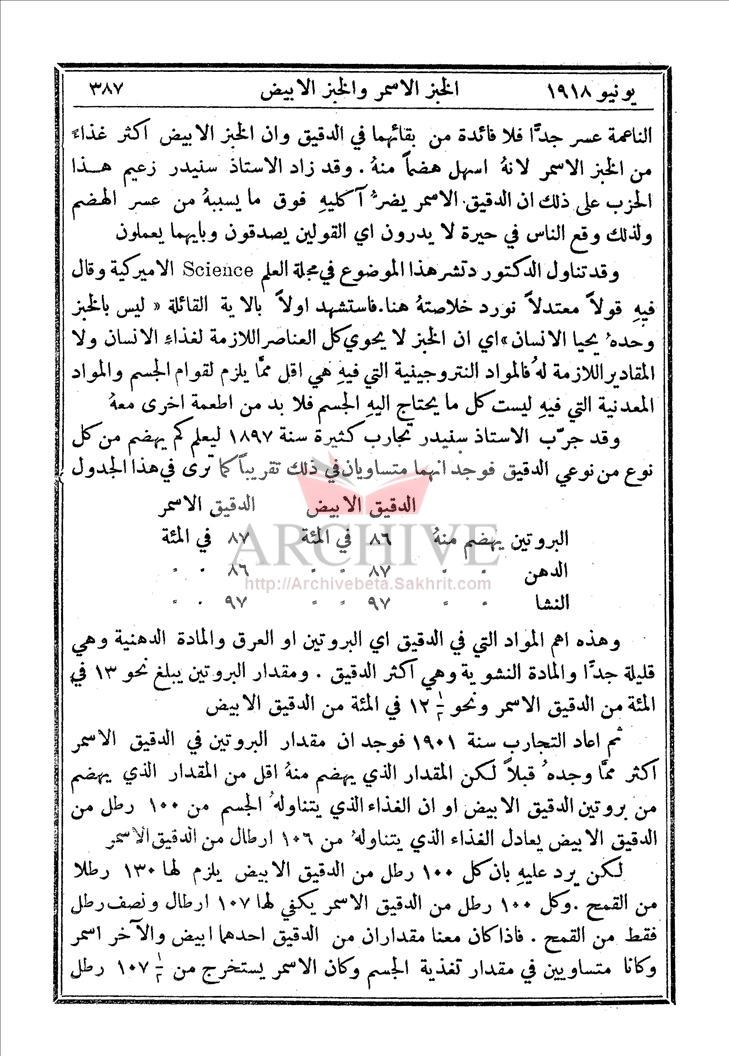 يونيو ١٩١٨ الخبز الاسمر والخبز الابيض ٣٨٧
الناعمة عسر جدًّا فلا فائدة من بقائهما في الدقيق وان الخبز الابيض اكثر غذاءً
من الخبز الاسمر لانهُ اسهل هضماً منهُ. وقد زاد الاستاذ سنيدر زعيم هذا
الحزب على ذلك ان الدقيق الاسمر يضرُّ آكليهِ فوق ما يسببهُ من عسر الهضم
ولذلك وقع الناس في حيرة لا يدرون اي القولين يصدقون وبايهما يعملون
وقد تناول الدكتور دتشر هذا الموضوع في مجلة العلم Science الاميركية وقال
فيهِ قولاً معتدلاً نورد خلاصتهُ هنا. فاستشهد اولاً بالاية القائلة « ليس بالخبز
وحدهُ يحيا الانسان » اي ان الخبز لا يحوي كل العناصر اللازمة لغذاء الانسان ولا
المقادير اللازمة لهُ فالمواد النتروجينية التي فيهِ هي اقل ممَّا يلزم لقوام الجسم والمواد
المعدنية التي فيهِ ليست كل ما يحتاج اليهِ الجسم فلا بد من اطعمة اخرى معهُ
وقد جرَّب الاستاذ سنيدر تجارب كثيرة سنة ١٨٩٧ ليعلم كم يهضم من كل
نوع من نوعي الدقيق فوجد انهما متساويان في ذلك تقريباً كما ترى في هذا الجدول
الدقيق الابيض الدقيق الاسمر
البروتين يهضم منهُ ٨٦ في المئة ٨٧ في المئة
الدهن " " ٨٧ " " ٨٦ " "
النشا " " ٩٧ " " ٩٧ " "
ARCHIVE
http://Archivebeta.Sakhrit.com
وهذه اهم المواد التي في الدقيق اي البروتين او العرق والمادة الدهنية وهي
قليلة جدًّا والمادة النشوية وهي اكثر الدقيق . ومقدار البروتين يبلغ نحو ١٣ في
المئة من الدقيق الاسمر ونحو ½ ١٢ في المئة من الدقيق الابيض
ثم اعاد التجارب سنة ١٩٠١ فوجد ان مقدار البروتين في الدقيق الاسمر
اكثر ممَّا وجدهُ قبلاً لكن المقدار الذي يهضم منهُ اقل من المقدار الذي يهضم
من بروتين الدقيق الابيض او ان الغذاء الذي يتناولهُ الجسم من ١٠٠ رطل من
الدقيق الابيض يعادل الغذاء الذي يتناولهُ من ١٠٦ ارطال من الدقيق الاسمر
لكن يرد عليهِ بان كل ١٠٠ رطل من الدقيق الابيض يلزم لها ١٣٠ رطلا
من القمح . وكل ١٠٠ رطل من الدقيق الاسمر يكفي لها ١٠٧ ارطال ونصف رطل
فقط من القمح . فاذا كان معنا مقداران من الدقيق احدهما ابيض والآخر اسمر
وكانا متساويين في مقدار تغذية الجسم وكان الاسمر يستخرج من ½ ١٠٧ رطل